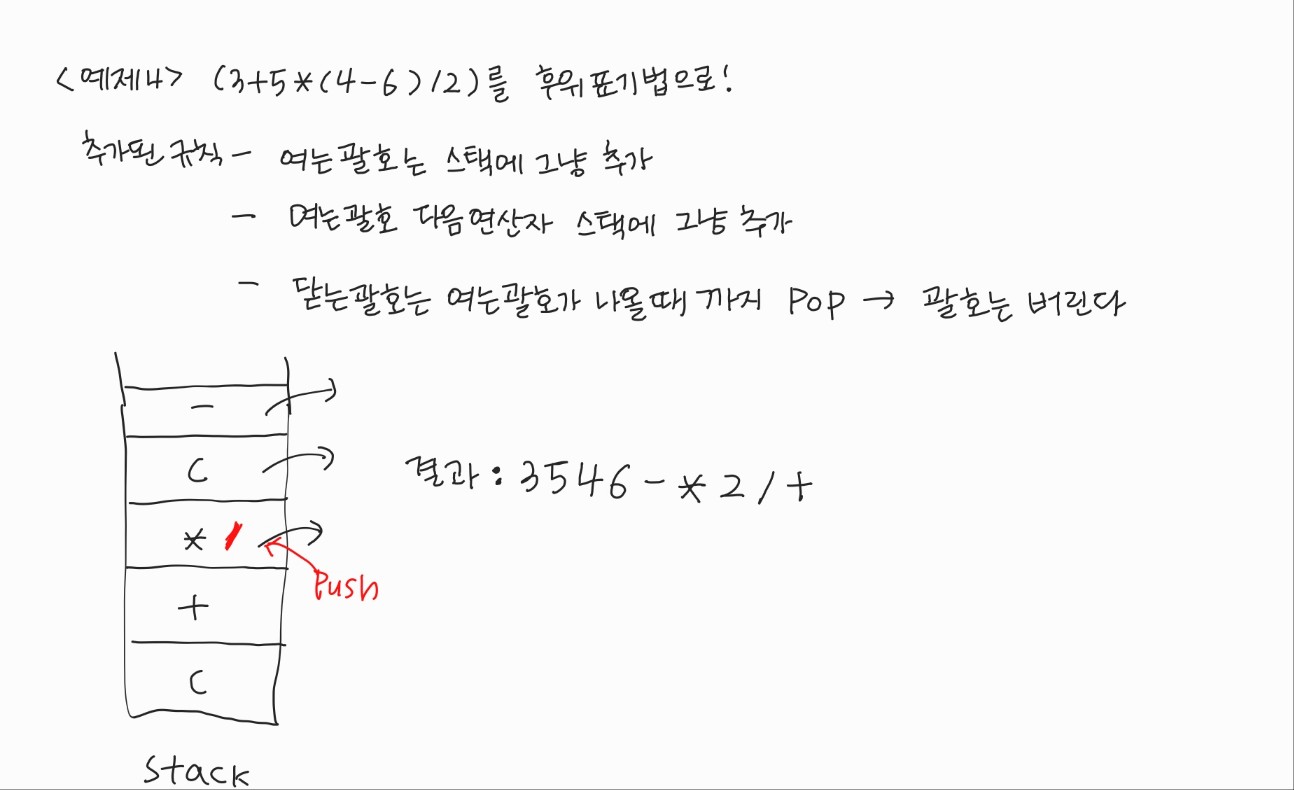 <예제4> (3+5*(4-6)/2)를 후위표기법으로!
추가된 규칙 - 여는괄호는 스택에 그냥 추가
- 여는괄호 다음연산자 스택에 그냥 추가
- 닫는괄호는 여는괄호가 나올때 까지 Pop → 괄호는 버린다
-
(
* /
Push
+
(
Stack
결과: 3546-*2/+